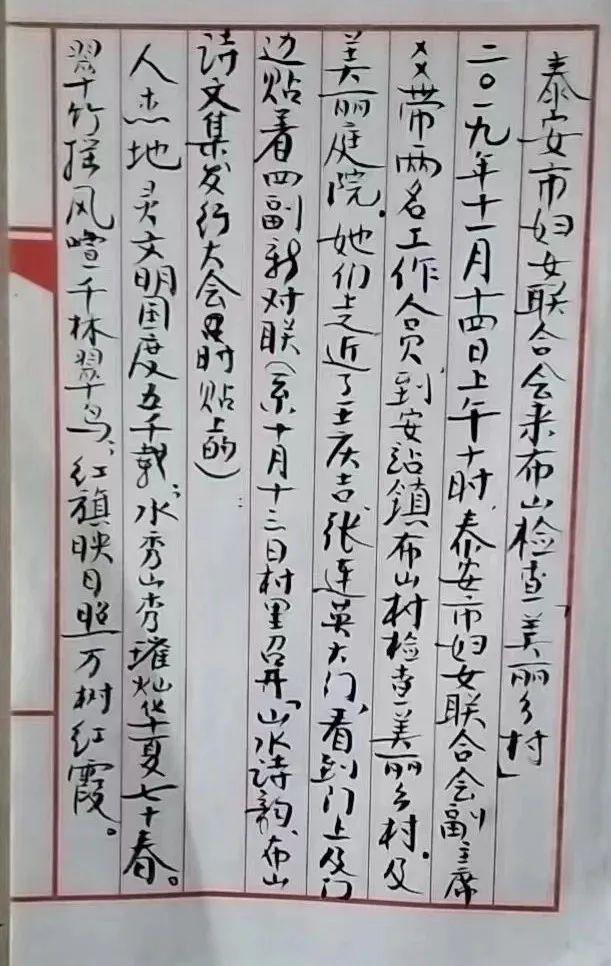 泰安市妇女联合会来布山检查「美丽乡村」
二〇一九年十一月十四日上午十时，泰安市妇女联合会副主席
××带两名工作人员到安站鎮布山村检查美丽乡村。及
美丽庭院。她们走近了王庆吉、张连英大门，看到门上及门
边贴着四副新对联（系十月十三日村里召开「山水诗韵、布山
诗文集发行大会时贴上的）
人杰地灵文明国度五千载，水秀山秀璀灿华夏七十春。
翠竹摇风喧千林翠鸟，红旗映日照万树红霞。